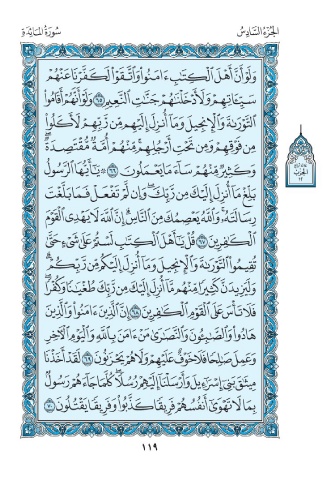 الجزء السادس
سورة المائدة
وَلَوْ أَنَّ أَهْلَ الْكِتَٰبِ ءَامَنُوا۟ وَاتَّقَوْا۟ لَكَفَّرْنَا عَنْهُمْ
سَيِّـَٔاتِهِمْ وَلَأَدْخَلْنَٰهُمْ جَنَّٰتِ النَّعِيمِ ٦٥ وَلَوْ أَنَّهُمْ أَقَامُوا۟
التَّوْرَىٰةَ وَالْإِنجِيلَ وَمَآ أُنزِلَ إِلَيْهِم مِّن رَّبِّهِمْ لَأَكَلُوا۟
مِن فَوْقِهِمْ وَمِن تَحْتِ أَرْجُلِهِم مِّنْهُمْ أُمَّةٌ مُّقْتَصِدَةٌ
وَكَثِيرٌ مِّنْهُمْ سَآءَ مَا يَعْمَلُونَ ٦٦ ۞ يَٰٓأَيُّهَا الرَّسُولُ
بَلِّغْ مَآ أُنزِلَ إِلَيْكَ مِن رَّبِّكَ وَإِن لَّمْ تَفْعَلْ فَمَا بَلَّغْتَ
رِسَالَتَهُۥ وَاللَّهُ يَعْصِمُكَ مِنَ النَّاسِ إِنَّ اللَّهَ لَا يَهْدِى الْقَوْمَ
الْكَٰفِرِينَ ٦٧ قُلْ يَٰٓأَهْلَ الْكِتَٰبِ لَسْتُمْ عَلَىٰ شَىْءٍ حَتَّىٰ
تُقِيمُوا۟ التَّوْرَىٰةَ وَالْإِنجِيلَ وَمَآ أُنزِلَ إِلَيْكُم مِّن رَّبِّكُمْ
وَلَيَزِيدَنَّ كَثِيرًا مِّنْهُم مَّآ أُنزِلَ إِلَيْكَ مِن رَّبِّكَ طُغْيَٰنًا وَكُفْرًا
فَلَا تَأْسَ عَلَى الْقَوْمِ الْكَٰفِرِينَ ٦٨ إِنَّ الَّذِينَ ءَامَنُوا۟ وَالَّذِينَ
هَادُوا۟ وَالصَّٰبِـُٔونَ وَالنَّصَٰرَىٰ مَنْ ءَامَنَ بِاللَّهِ وَالْيَوْمِ الْءَاخِرِ
وَعَمِلَ صَٰلِحًا فَلَا خَوْفٌ عَلَيْهِمْ وَلَا هُمْ يَحْزَنُونَ ٦٩ لَقَدْ أَخَذْنَا
مِيثَٰقَ بَنِىٓ إِسْرَٰٓءِيلَ وَأَرْسَلْنَآ إِلَيْهِمْ رُسُلًا كُلَّمَا جَآءَهُمْ رَسُولٌۢ
بِمَا لَا تَهْوَىٰٓ أَنفُسُهُمْ فَرِيقًا كَذَّبُوا۟ وَفَرِيقًا يَقْتُلُونَ ٧٠
١١٩